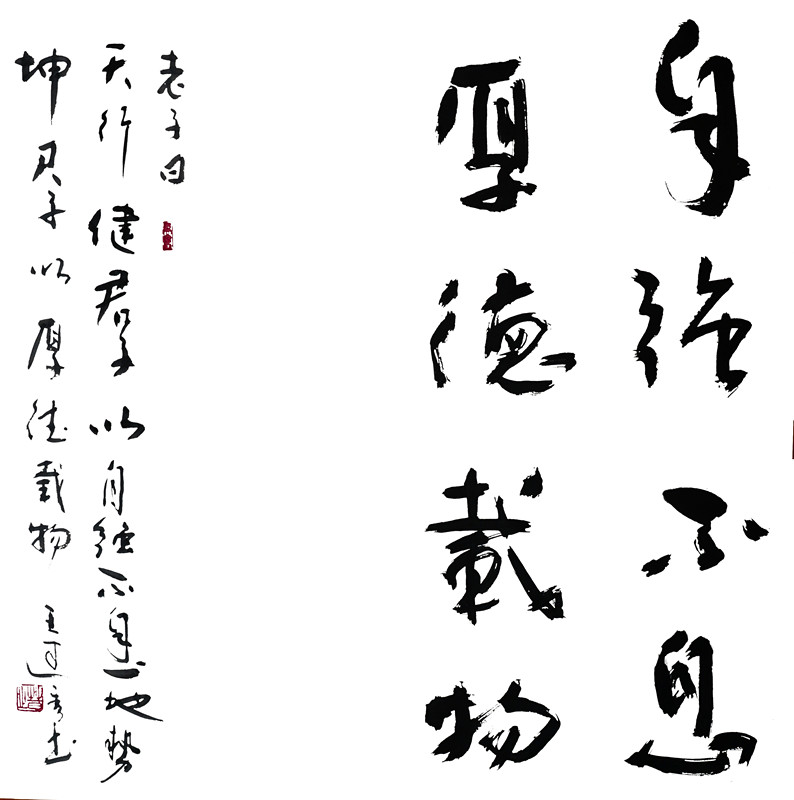 自强不息
厚德载物
老子曰
天行健君子以自强不息地势
坤君子以厚德载物